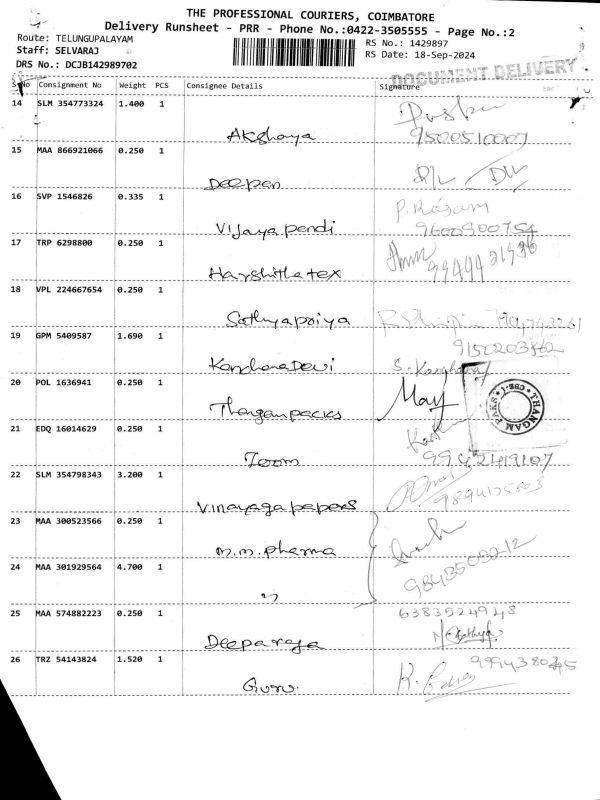 THE PROFESSIONAL COURIERS, COIMBATORE
Delivery Runsheet - PRR - Phone No.:0422-3505555 - Page No.:2
Route: TELUNGUPALAYAM
RS No.: 1429897
Staff: SELVARAJ
RS Date: 18-Sep-2024
DRS No.: DCJB142989702
DOCUMENT DELIVERY
SNo Consignment No Weight PCS Consignee Details Signature
14 SLM 354773324 1.400 1
Akshaya 9500510007
15 MAA 866921066 0.250 1
Deepan
16 SVP 1546826 0.335 1
P. Rasam
Vijaya pandi 9600900754
17 TRP 6298800 0.250 1
Harshitha tex
18 VPL 224667654 0.250 1
Sathyapriya
19 GPM 5409587 1.690 1
Kanchana Devi
20 POL 1636941 0.250 1
Thangam packs
THANGAM PAKS CBE-1
21 EDQ 16014629 0.250 1
Zoom 9942419107
22 SLM 354798343 3.200 1
Vinayaga papers
23 MAA 300523566 0.250 1
m.m. pharma
24 MAA 301929564 4.700 1
"
25 MAA 574882223 0.250 1
6383524948
Deeparaja
26 TRZ 54143824 1.520 1
Guru.